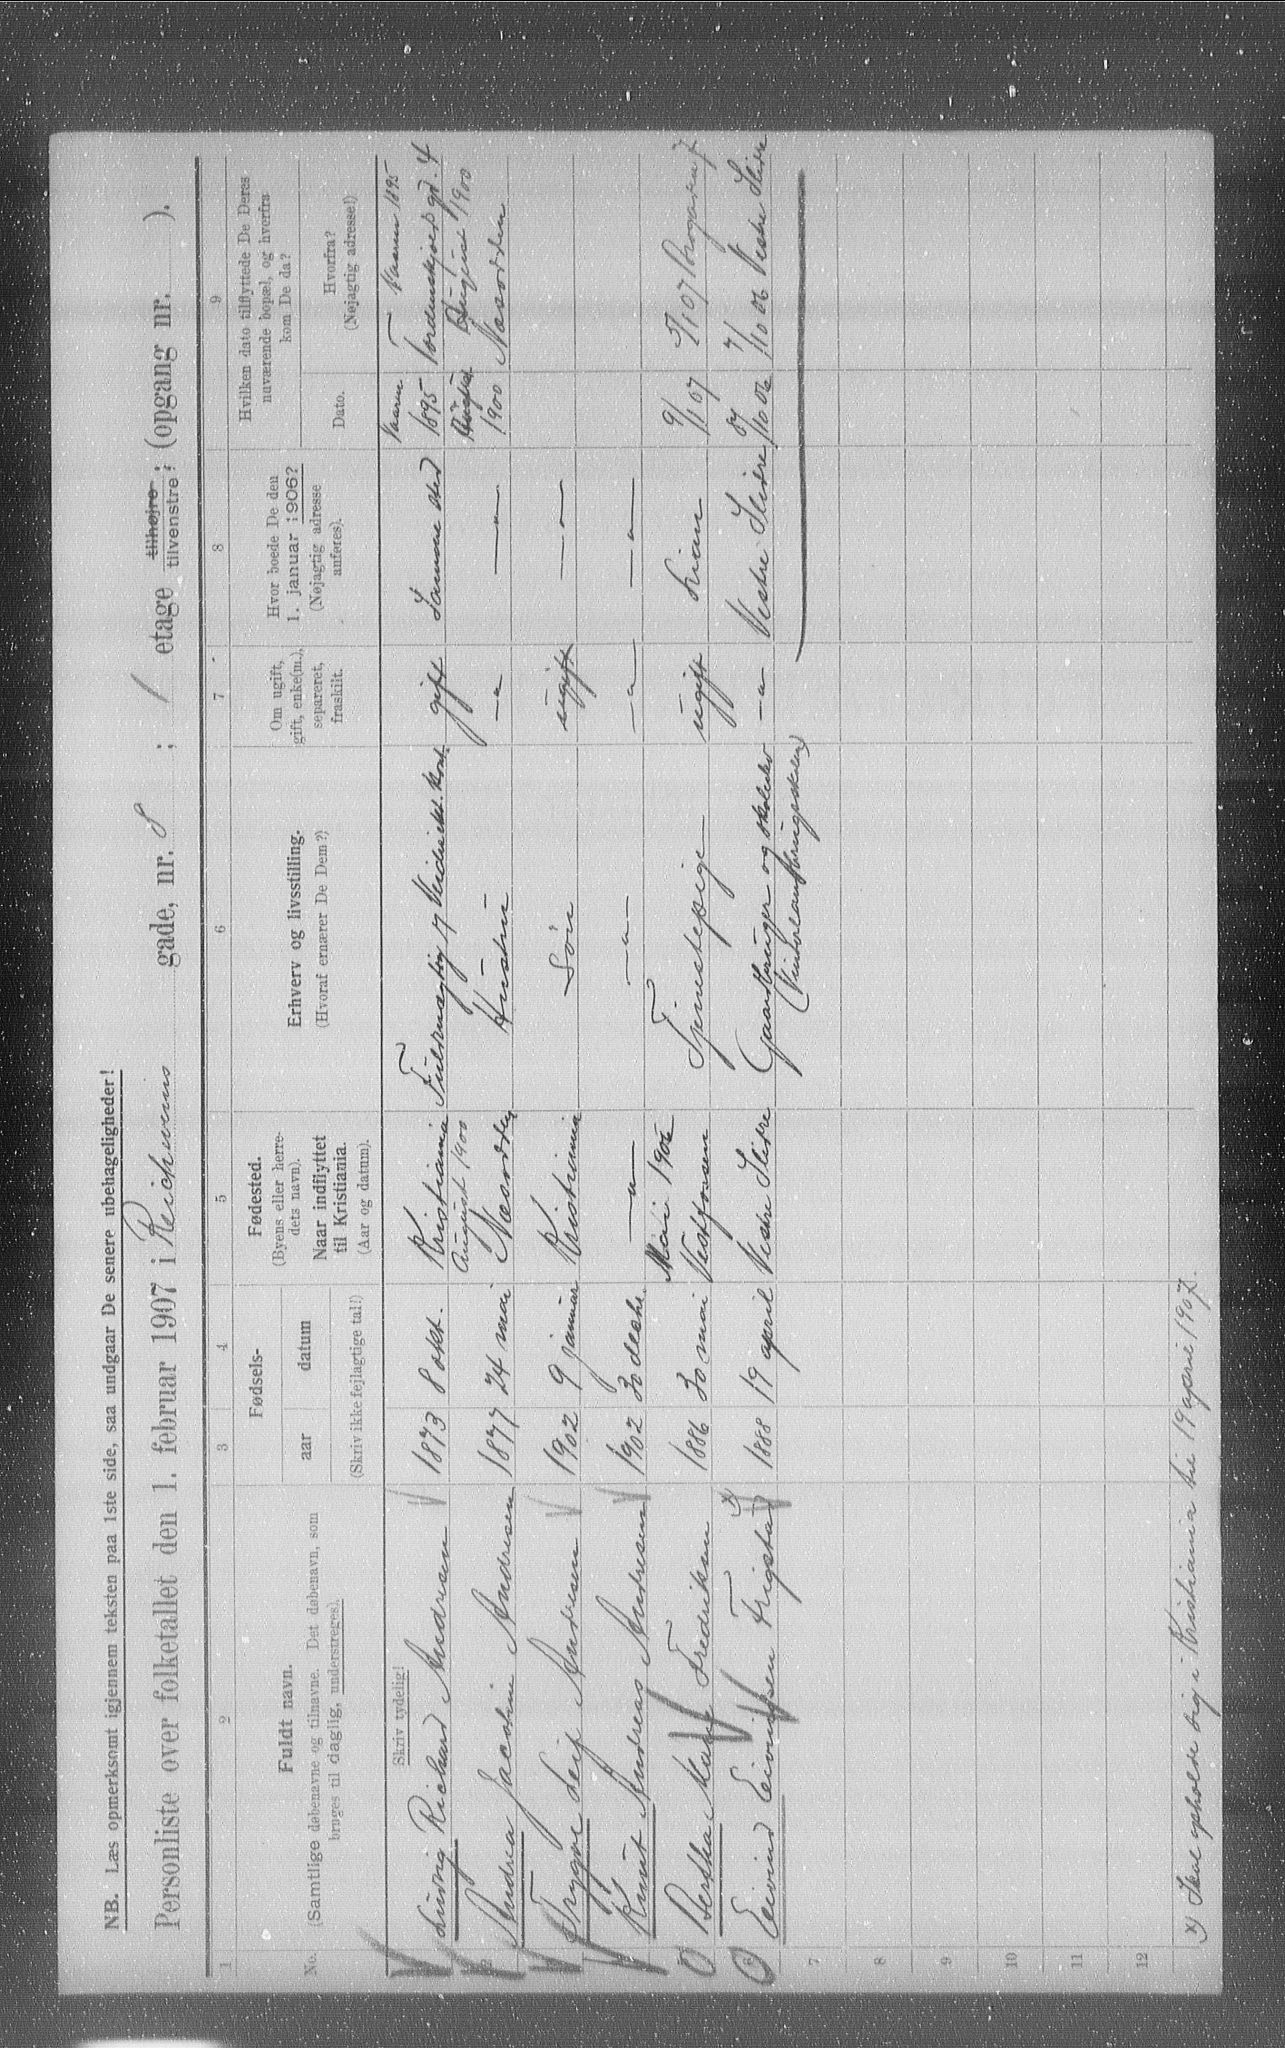 NB. Læs opmerksomt igjennem teksten paa 1ste side, saa undgaar De senere ubehageligheder!
Personliste over folketallet den 1. februar 1907 i Reichweins gade, nr. 8 ; 1 etage tilhøjre tilvenstre ; (opgang nr. ).
1 2 3 4 5 6 7 8 9
No.
Fuldt navn.
(Samtlige døbenavne og tilnavne. Det døbenavn, som
bruges til daglig, understreges).
Skriv tydelig!
Fødsels-
aar datum
(Skriv ikke fejlagtige tal!)
Fødested.
(Byens eller herre-
dets navn).
Naar indflyttet
til Kristiania.
(Aar og datum).
Erhverv og livsstilling.
(Hvoraf ernærer De Dem?)
Om ugift,
gift, enke(m.),
separeret,
fraskilt.
Hvor boede De den
1. januar 1906?
(Nøjagtig adresse
anføres).
Hvilken dato tilflyttede De Deres
nuværende bopæl, og hvorfra
kom De da?
Dato.
Hvorfra?
(Nøjagtig adresse!)
Ludvig Richard Andresen 1873 8 okt. Kristiania Fuldmægtig gift Samme sted Vaaren 1895 Vaaren 1895 Tordenskjolds gd. 4
Andrea Jacobine Andresen 1877 24 mai August 1900 Næsodden Hustru —"— —"— August 1900 August 1900 Næsodden
Trygve Leif Andresen 1902 9 januar Kristiania Søn ugift —"—
Knut Andreas Andresen 1902 30 decbr. —"— —"— —"— —"—
Bertha Marie Fredriksen 1886 30 mai 1906 Tjenestepige ugift 9/1 07
Eivind Eivindsen Frigstad x) 1888 19 april Vestre Slidre Gaardbruger og —"— Vestre Slidre /10 06 /10 06 Vestre Slidre
7
8
9
10
11
12
x) Skal opholde sig i Kristiania til 19 april 1907.